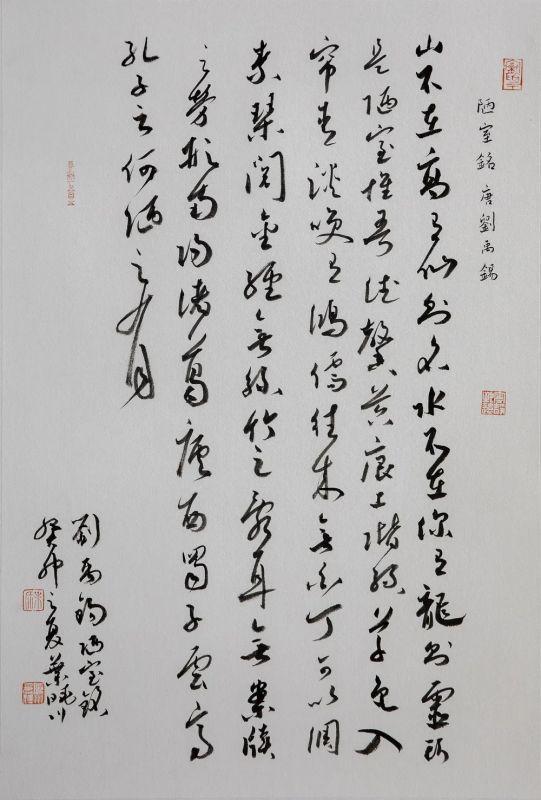 陋室銘 唐 劉禹錫
山不在高有仙則名水不在深有龍則靈斯
是陋室惟吾德馨苔痕上階綠草色入
帘青談笑有鴻儒往來無白丁可以調
素琴閱金經無絲竹之亂耳無案牘
之勞形南陽諸葛廬西蜀子雲亭
孔子云何陋之有
劉禹錫陋室銘
癸卯之夏葉